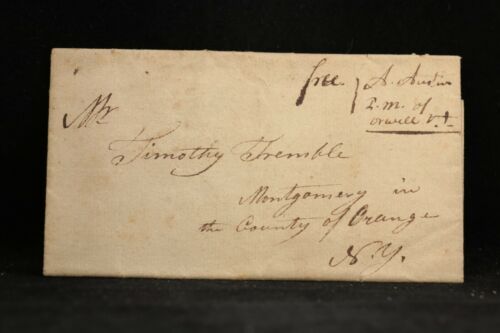 free. } A. Austin
P.m. of
orwell V.t.
Mr
Timothy Tremble
Montgomery in
the County of Orange
N.Y.